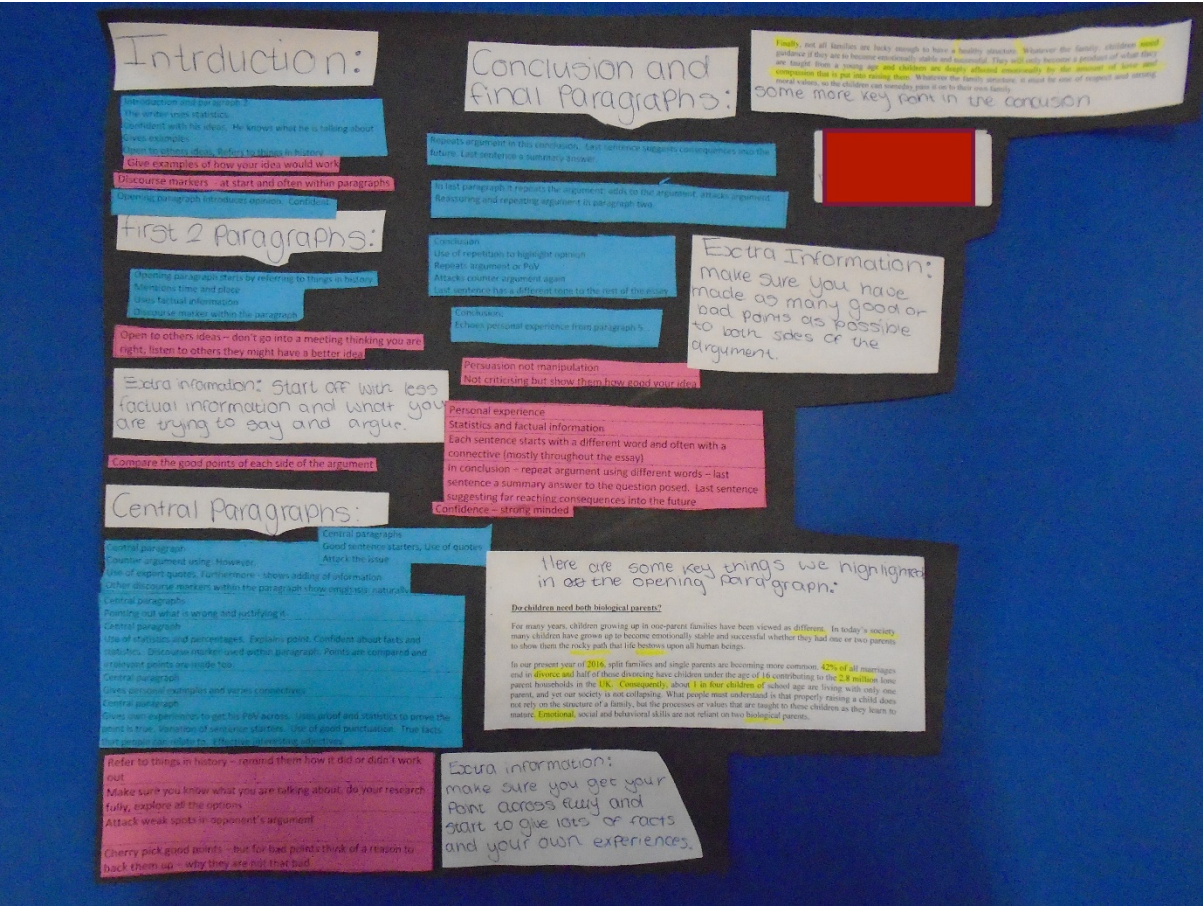 Intrduction:
Introduction and paragraph 2
The writer uses statistics
Confident with his ideas. He knows what he is talking about
Gives examples
Open to others ideas. Refers to things in history
Give examples of how your idea would work
Discourse markers - at start and often within paragraphs
Opening paragraph introduces opinion. Confident
first 2 Paragraphs:
Opening paragraph starts by referring to things in history
Mentions time and place
Uses factual information
Discourse marker within the paragraph
Open to others ideas – don't go into a meeting thinking you are
right, listen to others they might have a better idea
Extra information: Start off with less
factual information and what you
are trying to say and argue.
Compare the good points of each side of the argument
Central Paragraphs:
Central paragraphs
Good sentence starters, Use of quotes
Attack the issue
Central paragraph
Counter argument using However
Use of expert quotes. Furthermore - shows adding of information
Other discourse markers within the paragraph show emphasis: naturally
Central paragraphs
Pointing out what is wrong and justifying it
Central paragraph
Use of statistics and percentages. Explains point. Confident about facts and
statistics. Discourse marker used within paragraph. Points are compared and
irrelevant points are made too
Central paragraph
Gives personal examples and varies connectives
Central paragraph
Gives own experiences to get his PoV across. Uses proof and statistics to prove the
point is true. Variation of sentence starters. Use of good punctuation. True facts
that people can relate to. Effective interesting adjectives
Refer to things in history – remind them how it did or didn't work
out
Make sure you know what you are talking about, do your research
fully, explore all the options
Attack weak spots in opponent's argument
Cherry pick good points – but for bad points think of a reason to
back them up – why they are not that bad
Conclusion and
final Paragraphs:
Repeats argument in this conclusion. Last sentence suggests consequences into the
future. Last sentence a summary answer
In last paragraph it repeats the argument, adds to the argument, attacks argument.
Reassuring and repeating argument in paragraph two.
Conclusion
Use of repetition to highlight opinion
Repeats argument or PoV
Attacks counter argument again
Last sentence has a different tone to the rest of the essay
Conclusion:
Echoes personal experience from paragraph 5
Persuasion not manipulation
Not criticising but show them how good your idea
Personal experience
Statistics and factual information
Each sentence starts with a different word and often with a
connective (mostly throughout the essay)
In conclusion – repeat argument using different words – last
sentence a summary answer to the question posed. Last sentence
suggesting far reaching consequences into the future
Confidence – strong minded
Finally, not all families are lucky enough to have a healthy structure. Whatever the family, children need
guidance if they are to become emotionally stable and successful. They will only become a product of what they
are taught from a young age and children are deeply affected emotionally by the amount of love and
compassion that is put into raising them. Whatever the family structure, it must be one of respect and strong
moral values, so the children can someday pass it on to their own family.
some more key point in the conclusion
Exctra Information:
make sure you have
made as many good or
bad points as possible
to both sides of the
argument.
Here are some key things we highlighted
in the opening paragraph:
Do children need both biological parents?
For many years, children growing up in one-parent families have been viewed as different. In today's society
many children have grown up to become emotionally stable and successful whether they had one or two parents
to show them the rocky path that life bestows upon all human beings.
In our present year of 2016, split families and single parents are becoming more common. 42% of all marriages
end in divorce and half of those divorcing have children under the age of 16 contributing to the 2.8 million lone
parent households in the UK. Consequently, about 1 in four children of school age are living with only one
parent, and yet our society is not collapsing. What people must understand is that properly raising a child does
not rely on the structure of a family, but the processes or values that are taught to these children as they learn to
mature. Emotional, social and behavioral skills are not reliant on two biological parents.
Exctra information:
make sure you get your
Point across fully and
start to give lots of facts
and your own experiences.